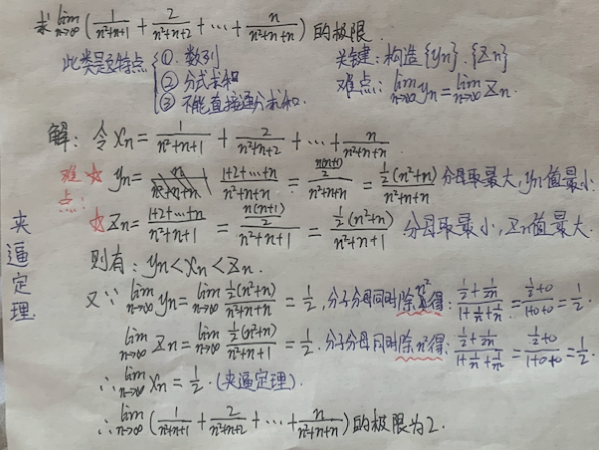 求 lim n→∞ (1/(n²+1) + 2/(n²+2) + … + n/(n²+n)) 的极限.
此类题特点 { ①. 数列 关键: 构造{yn}.{Zn}
② 分式求和 难点: lim n→∞ yn = lim n→∞ Zn.
③ 不能直接通分求和.
解: 令 Xn = 1/(n²+1) + 2/(n²+2) + … + n/(n²+n)
难点: ☆ yn = (1+2+…+n)/(n²+n+n) = (n(n+1)/2)/(n²+n+n) = ½(n²+n)/(n²+n+n) 分母取最大, yn值最小.
☆ Zn = (1+2+…+n)/(n²+n+1) = (n(n+1)/2)/(n²+n+1) = ½(n²+n)/(n²+n+1) 分母取最小, Zn值最大.
则有: yn < Xn < Zn.
又∵ lim n→∞ yn = lim n→∞ ½(n²+n)/(n²+n+n) = 1/2, 分子分母同时除n²得: (½+1/2n)/(1+1/n+1/n) = (½+0)/(1+0+0) = 1/2.
lim n→∞ Zn = lim n→∞ ½(n²+n)/(n²+n+1) = 1/2. 分子分母同时除n²得: (½+1/2n)/(1+1/n+1/n²) = (½+0)/(1+0+0) = 1/2.
∴ lim n→∞ Xn = 1/2. (夹逼定理).
∴ lim n→∞ (1/(n²+1) + 2/(n²+2) + … + n/(n²+n)) 的极限为2.
夹逼定理